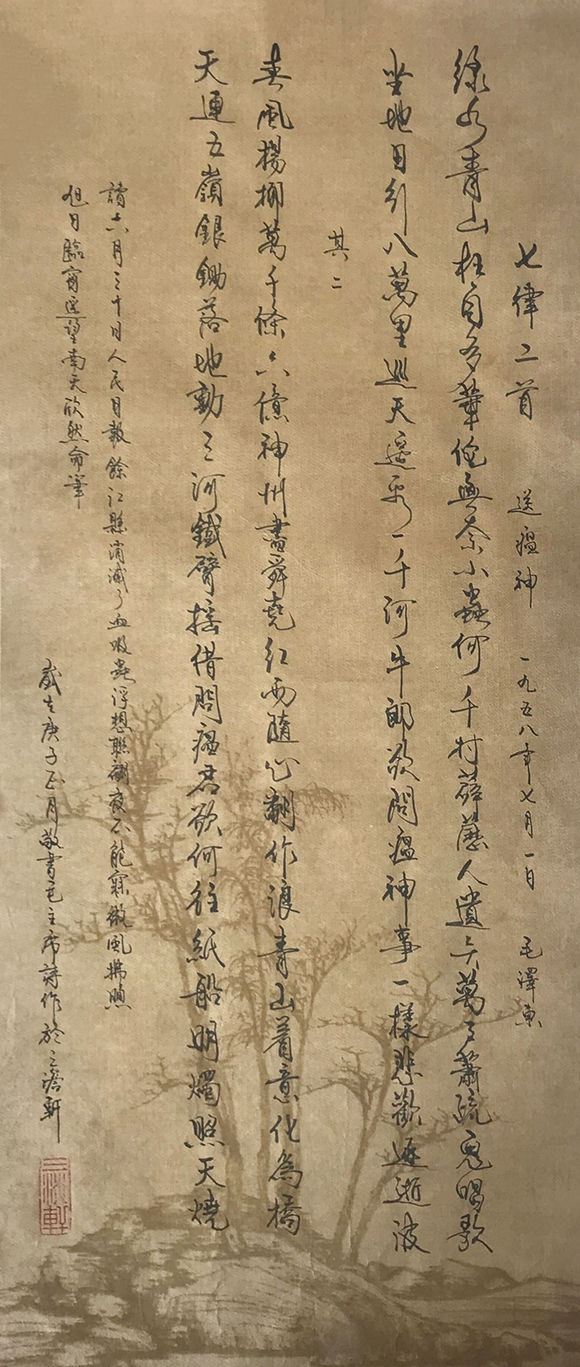 七律二首 送瘟神 一九五八年七月一日 毛澤東
綠水青山枉自多華佗無奈小蟲何千村薜藶人遺矢萬戶蕭疏鬼唱歌
坐地日行八萬里巡天遙看一千河牛郎欲問瘟神事一樣悲歡逐逝波
其二
春風楊柳萬千條六億神州盡舜堯紅雨隨心翻作浪青山着意化為橋
天連五嶺銀鋤落地動三河鐵臂搖借問瘟君欲何往紙船明燭照天燒
讀六月三十日人民日報餘江縣消滅了血吸蟲浮想聯翩夜不能寐微風拂煦
旭日臨窗遙望南天欣然命筆
歲在庚子正月敬書毛主席詩作於三軒
三軒